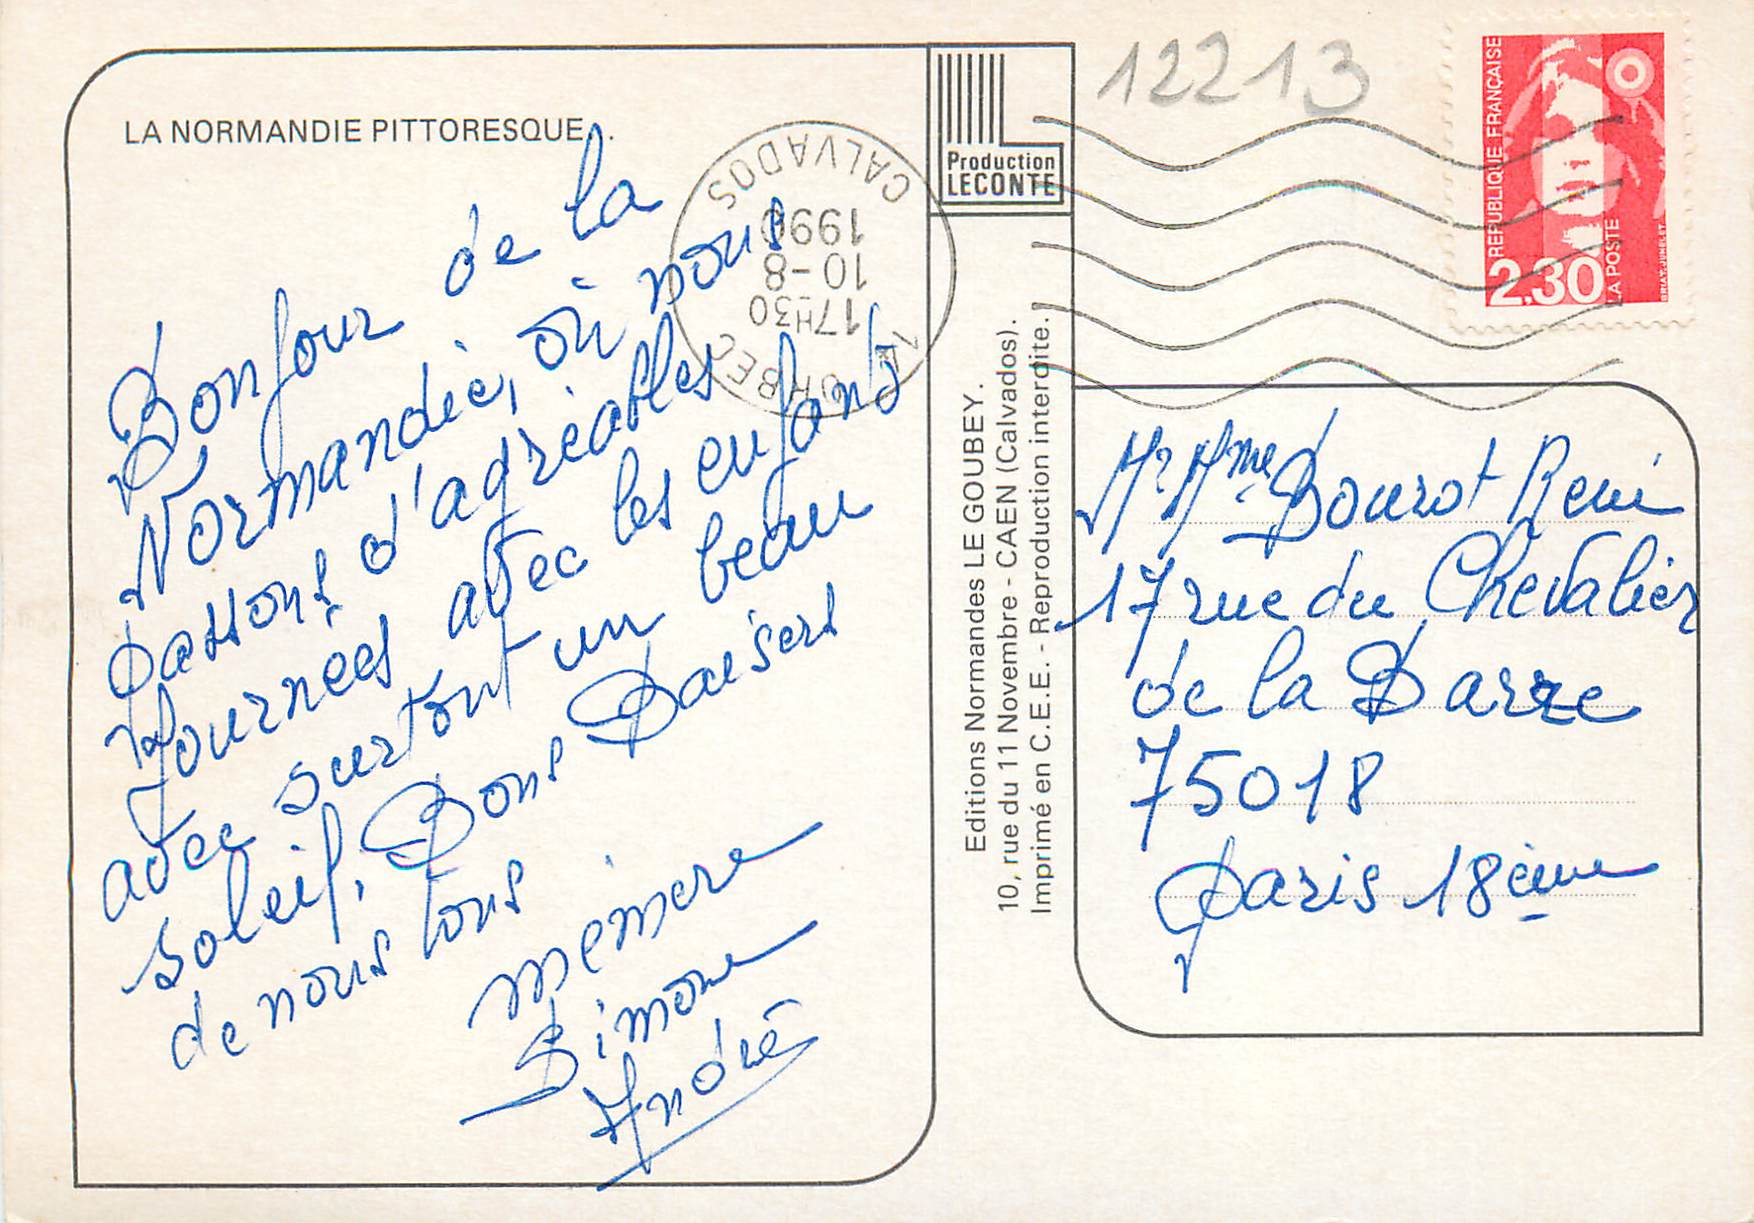 LA NORMANDIE PITTORESQUE.
Bonjour de la
Normandie, où nous
passons d'agréables
Journées avec les enfants
avec surtout un beau
soleil, Bons Baisers
de nous tous
mémère
Simone
André
CALVADOS
1990
10-8
17H30
ORBEC
Production
LECONTE
Editions Normandes LE GOUBEY.
10, rue du 11 Novembre - CAEN (Calvados).
Imprimé en C.E.E. - Reproduction interdite.
12213
REPUBLIQUE FRANÇAISE
2,30
LA POSTE
BRIAT.JUMELET
Mr Mme Bourot René
17 rue du Chevalier
de la Barre
75018
Paris 18ème